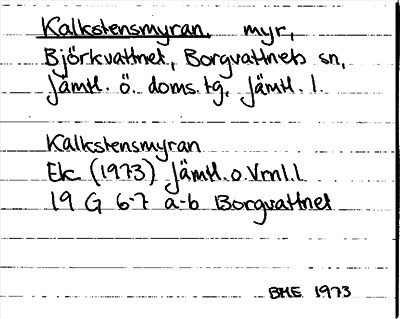 Kalkstensmyran, myr,
Björkvattnet, Borgvattnets sn,
Jämtl. ö. doms. tg, Jämtl. l.
Kalkstensmyran
Ek (1973) Jämtl. o. Vrml. l.
19 G 6-7 a-b Borgvattnet
BME 1973